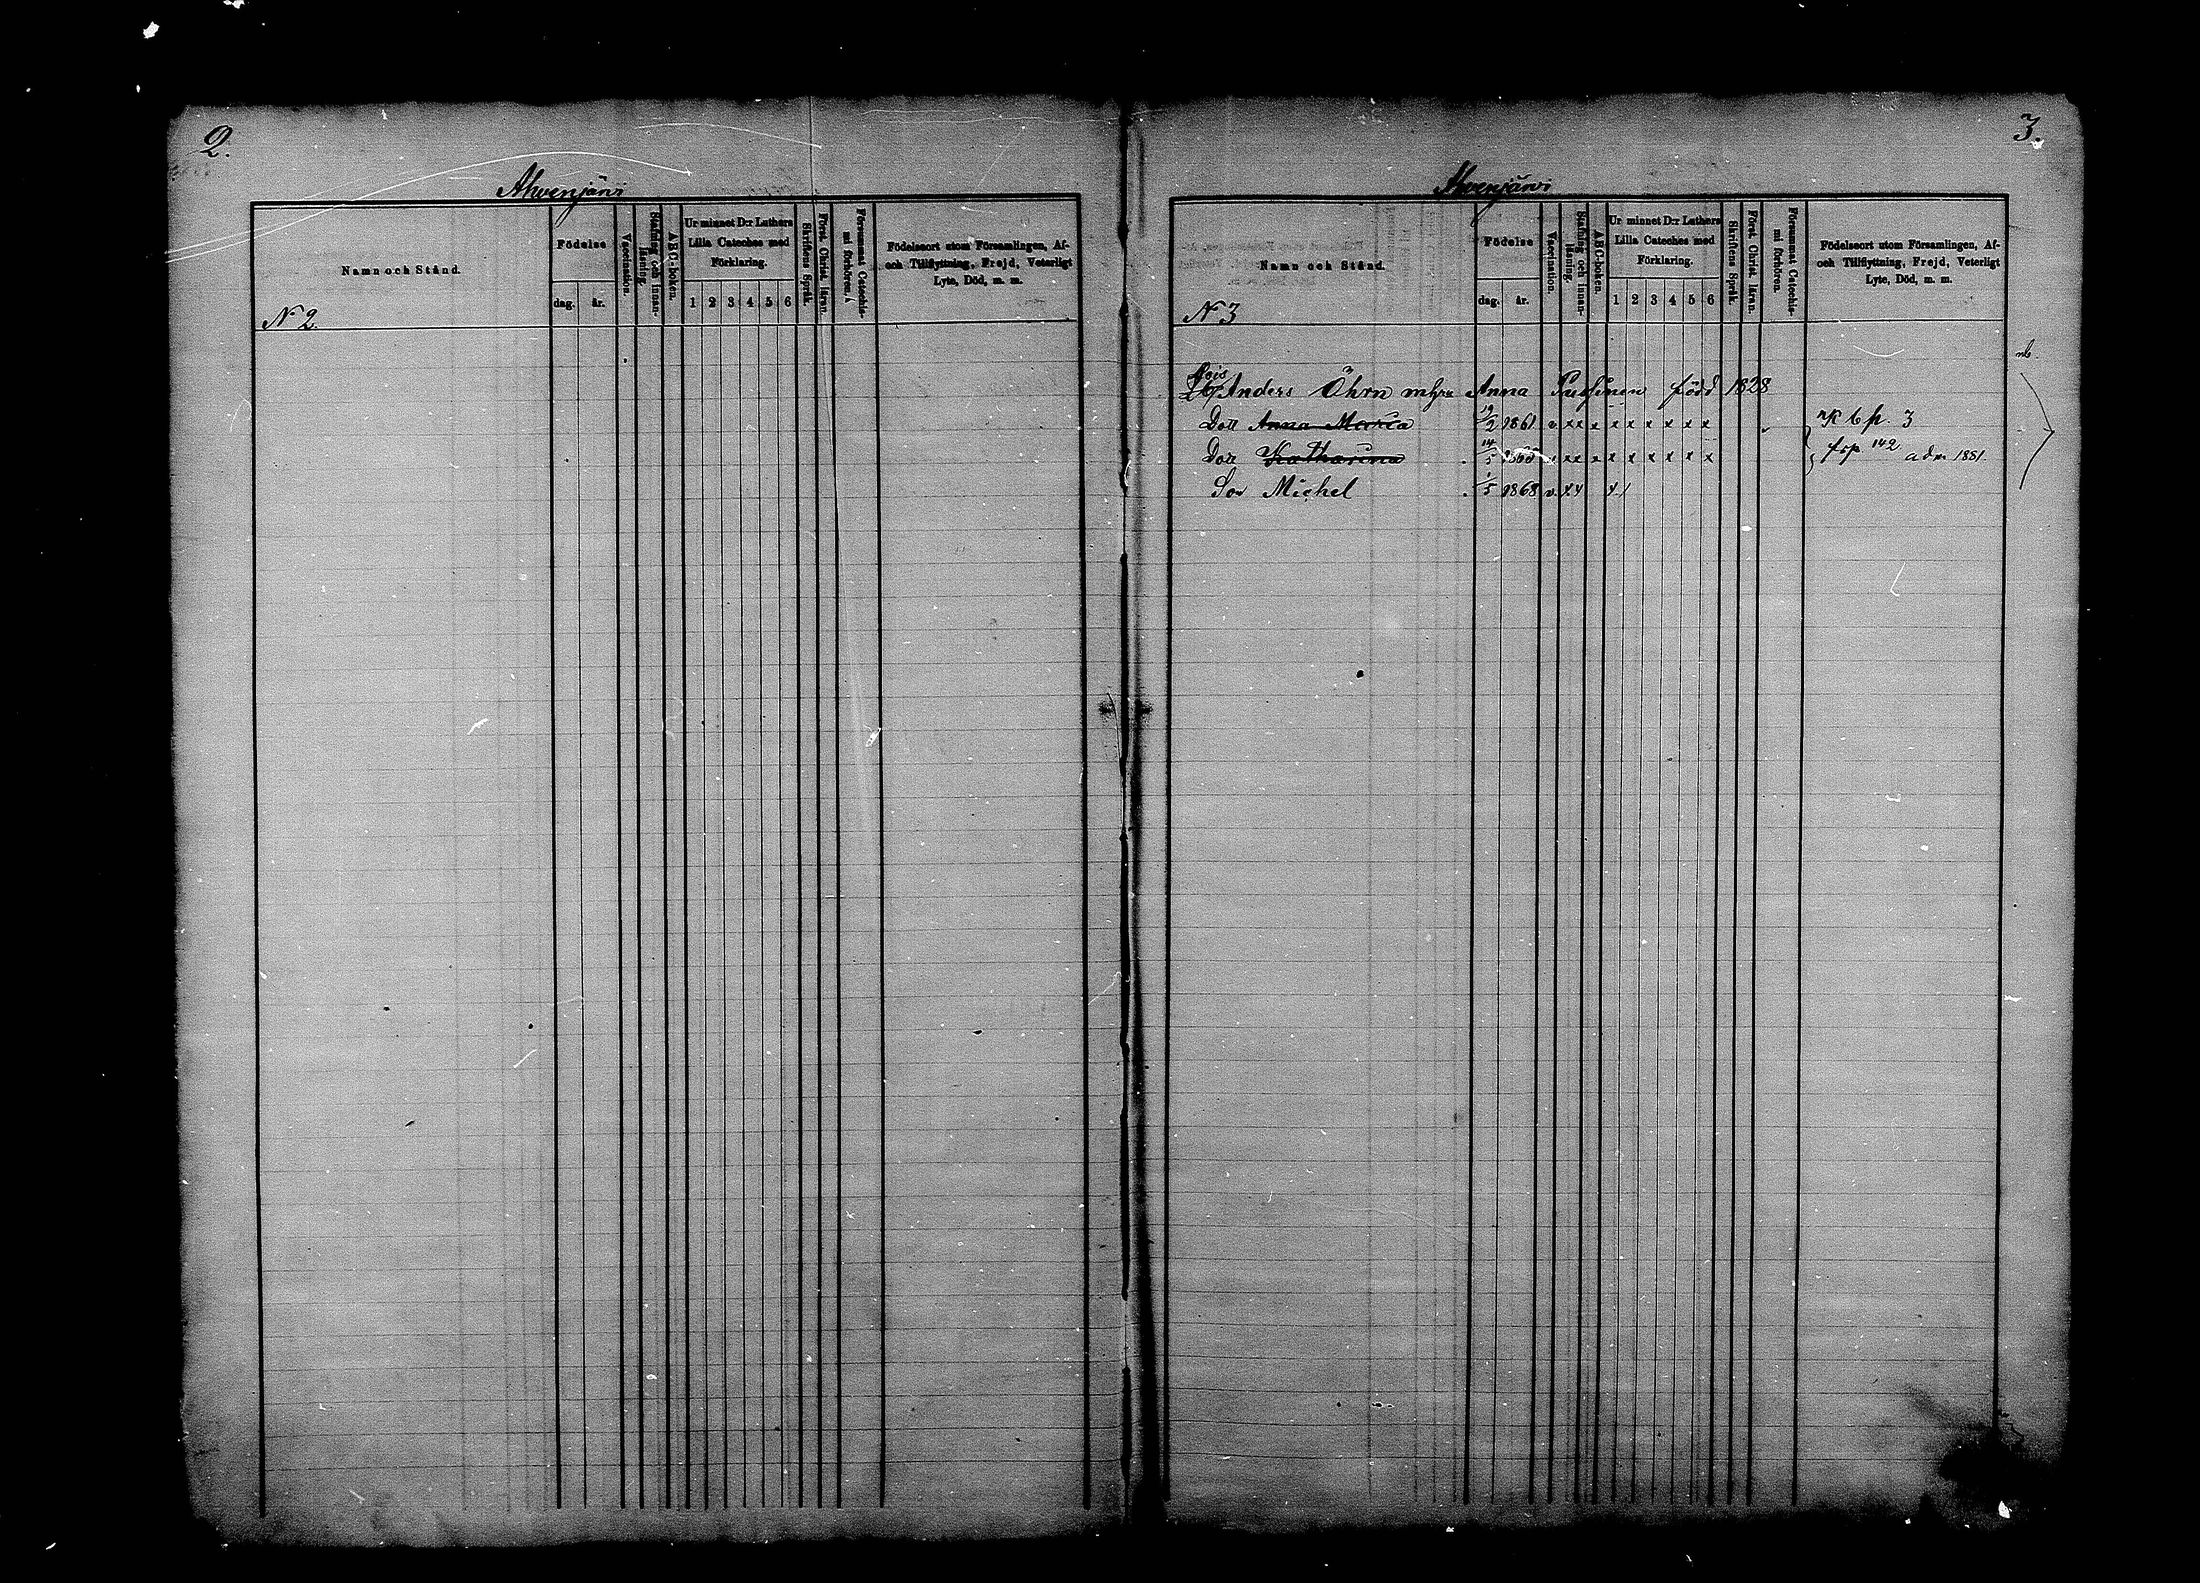 2.
Ahvenjärvi
Namn och Stånd.
Födelse
dag.
år.
Vaccination.
Stafning och innan-
läsning.
A B C-boken.
Ur minnet D:r Luthers
Lilla Cateches med
Förklaring.
1 2 3 4 5 6
Skriftens Språk.
Först. Christ. läran.
Försummat Catechis-
mi förhören.
Födelseort utom Församlingen, Af-
och Tillflyttning, Frejd, Veterligt
Lyte, Död, m. m.
N 2.
3.
Ahvenjärvi
Namn och Stånd.
Födelse
dag.
år.
Vaccination.
Stafning och innan-
läsning.
A B C-boken.
Ur minnet D:r Luthers
Lilla Cateches med
Förklaring.
1 2 3 4 5 6
Skriftens Språk.
Först. Christ. läran.
Försummat Catechis-
mi förhören.
Födelseort utom Församlingen, Af-
och Tillflyttning, Frejd, Veterligt
Lyte, Död, m. m.
N 3
Anders Öhrn Anna född 1828
Dott Anna Maria 19/2 1861 v xx x x x x x x x p. 3
Dott Katharina 14/5 xx x x x x x x x 142 adm 1881.
Son Michel 1/5 1868 v. xx x /